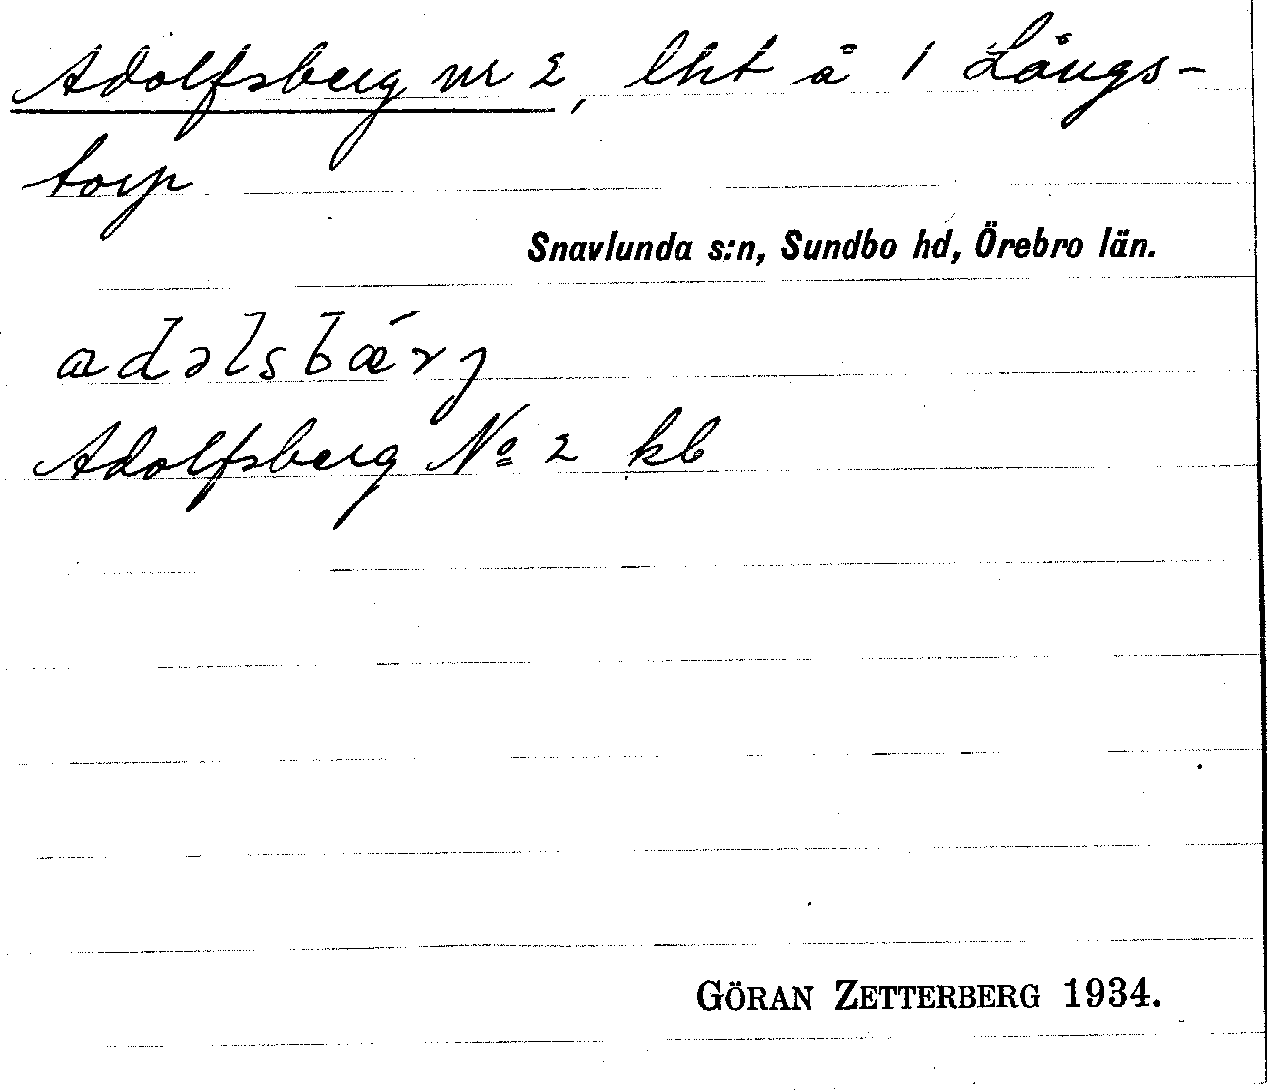 Adolfsberg nr 2, lht å 1 Långs-
torp
Snavlunda s:n, Sundbo hd, Örebro län.
adəlsbǽrj
Adolfsberg Nº 2 kb
GÖRAN ZETTERBERG 1934.